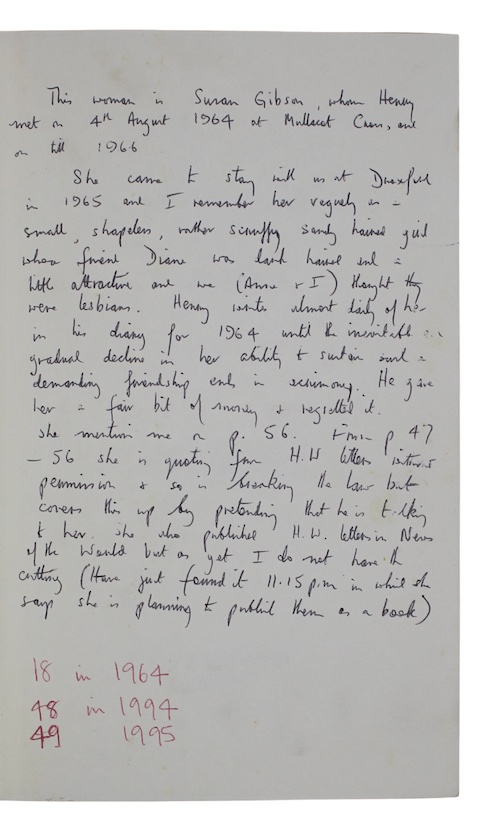 This woman is Susan Gibson, whom Henry
met on 4th August 1964 at Mullacot Cross, and
on till 1966
She came to stay with us at Droxford
in 1965 and I remember her vaguely as a
small, shapeless, rather scruffy sandy haired girl
whose friend Diane was dark haired and a
little attractive and we (Anne & I) thought they
were lesbians. Henry writes almost daily of her
in his diary for 1964 until the inevitable
gradual decline in her ability to sustain such a
demanding friendship ends in acrimony. He gave
her a fair bit of money & regretted it.
She mentions me on p. 56. From p 47
– 56 she is quoting from H.W letters without
permission & so is breaking the law but
covers this up by pretending that he is talking
to her. She also published H.W. letters in News
of the World but as yet I do not have the
cutting (Have just found it 11.15 p.m in which she
says she is planning to publish them as a book)
18 in 1964
48 in 1994
49 1995